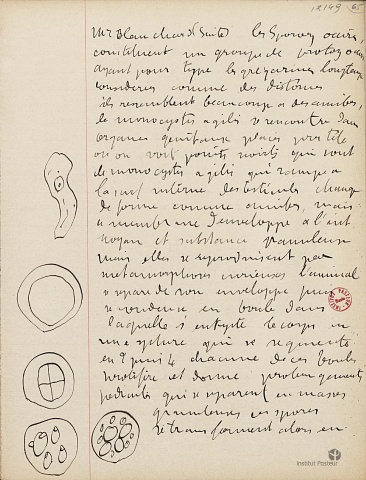 12149 65
Mr Blanchard (Suite) les Sporozoaires
constituent un groupe de protozoaires
ayant pour type les grégarines longtemps
considérés comme des distomes
ils ressemblent beaucoup a des amibes,
le monocystis agilis se rencontre dans
organes génitaux placés près tête
où on voit points noirs qui sont
de monocystis agilis qui rampe a
la surf interne des testicules change
de forme comme amibes, mais
a membrane d'enveloppe a l'int
noyau et substance granuleuse
mais elles se reproduisent par
métamorphoses curieuses l'animal
se sépare de son enveloppe puis
se condense en boule dans
laquelle s'enkyste le corps en
une sphère qui se segmente
en 2 puis 4 chacune de ces boules
prolifère et donne prolongements
pédiculés qui se séparent en masses
granuleuses ces spores
se transforment alors en
INSTITUT PASTEUR
Institut Pasteur